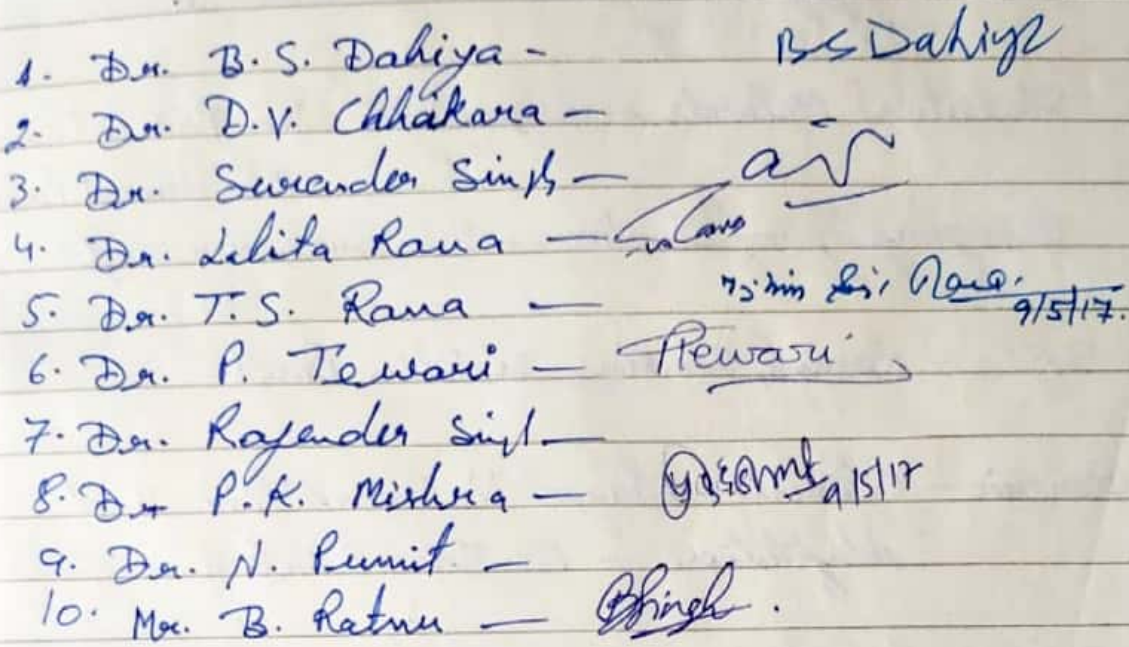 1. Dr. B. S. Dahiya - BS Dahiya
2. Dr. D.V. Chhakara —
3. Dr. Surender Singh —
4. Dr. Lalita Rana —
5. Dr. T. S. Rana — Rana. 9/5/17.
6. Dr. P. Tewari — PTewari
7. Dr. Rajender Singh —
8. Dr P. K. Mishra — 9/5/17
9. Dr. N. Pumit. —
10. Mr. B. Ratnu — BSingh.